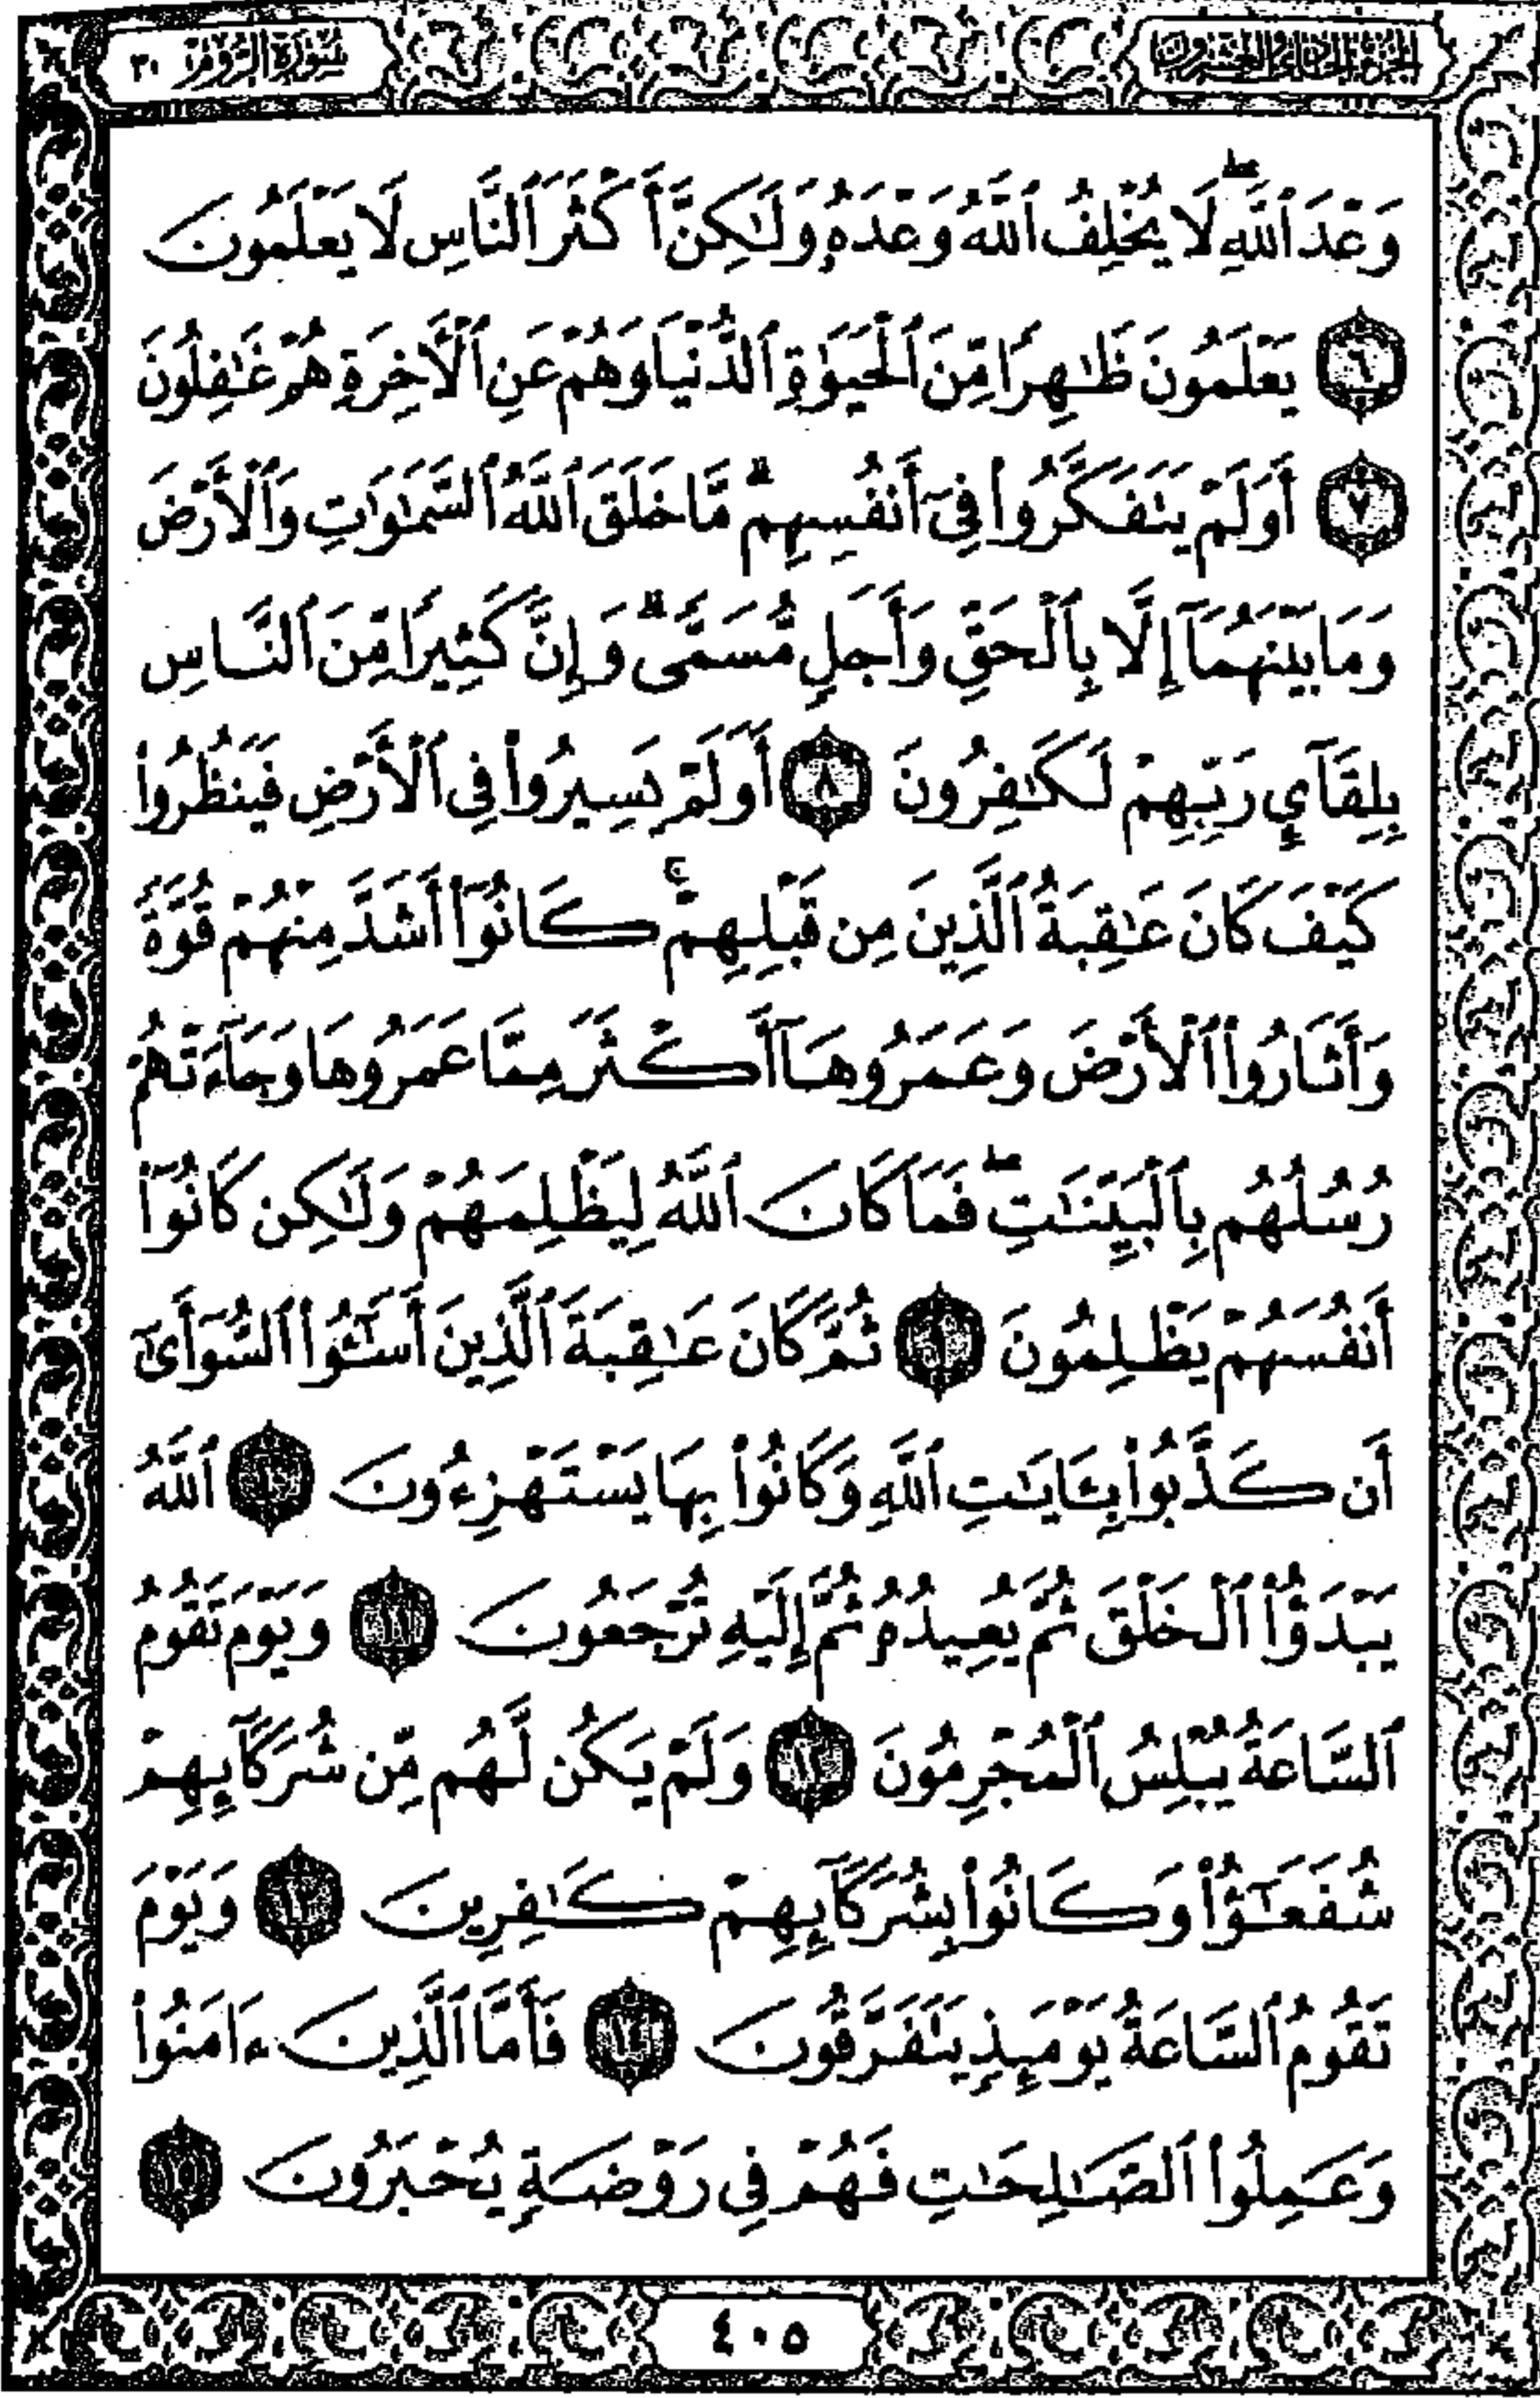 الجزء الحادي والعشرون
سورة الروم ٣٠
وَعْدَ ٱللَّهِ ۖ لَا يُخْلِفُ ٱللَّهُ وَعْدَهُۥ وَلَٰكِنَّ أَكْثَرَ ٱلنَّاسِ لَا يَعْلَمُونَ
٦ يَعْلَمُونَ ظَٰهِرًا مِّنَ ٱلْحَيَوٰةِ ٱلدُّنْيَا وَهُمْ عَنِ ٱلْأَخِرَةِ هُمْ غَٰفِلُونَ
٧ أَوَلَمْ يَتَفَكَّرُوا۟ فِىٓ أَنفُسِهِم ۗ مَّا خَلَقَ ٱللَّهُ ٱلسَّمَٰوَٰتِ وَٱلْأَرْضَ
وَمَا بَيْنَهُمَآ إِلَّا بِٱلْحَقِّ وَأَجَلٍ مُّسَمًّى ۗ وَإِنَّ كَثِيرًا مِّنَ ٱلنَّاسِ
بِلِقَآئِ رَبِّهِمْ لَكَٰفِرُونَ ٨ أَوَلَمْ يَسِيرُوا۟ فِى ٱلْأَرْضِ فَيَنظُرُوا۟
كَيْفَ كَانَ عَٰقِبَةُ ٱلَّذِينَ مِن قَبْلِهِمْ ۚ كَانُوٓا۟ أَشَدَّ مِنْهُمْ قُوَّةً
وَأَثَارُوا۟ ٱلْأَرْضَ وَعَمَرُوهَآ أَكْثَرَ مِمَّا عَمَرُوهَا وَجَآءَتْهُمْ
رُسُلُهُم بِٱلْبَيِّنَٰتِ ۖ فَمَا كَانَ ٱللَّهُ لِيَظْلِمَهُمْ وَلَٰكِن كَانُوٓا۟
أَنفُسَهُمْ يَظْلِمُونَ ٩ ثُمَّ كَانَ عَٰقِبَةَ ٱلَّذِينَ أَسَٰٓـُٔوا۟ ٱلسُّوٓأَىٰٓ
أَن كَذَّبُوا۟ بِـَٔايَٰتِ ٱللَّهِ وَكَانُوا۟ بِهَا يَسْتَهْزِءُونَ ١٠ ٱللَّهُ
يَبْدَؤُا۟ ٱلْخَلْقَ ثُمَّ يُعِيدُهُۥ ثُمَّ إِلَيْهِ تُرْجَعُونَ ١١ وَيَوْمَ تَقُومُ
ٱلسَّاعَةُ يُبْلِسُ ٱلْمُجْرِمُونَ ١٢ وَلَمْ يَكُن لَّهُم مِّن شُرَكَآئِهِمْ
شُفَعَٰٓؤُا۟ وَكَانُوا۟ بِشُرَكَآئِهِمْ كَٰفِرِينَ ١٣ وَيَوْمَ
تَقُومُ ٱلسَّاعَةُ يَوْمَئِذٍ يَتَفَرَّقُونَ ١٤ فَأَمَّا ٱلَّذِينَ ءَامَنُوا۟
وَعَمِلُوا۟ ٱلصَّٰلِحَٰتِ فَهُمْ فِى رَوْضَةٍ يُحْبَرُونَ ١٥
٤٠٥